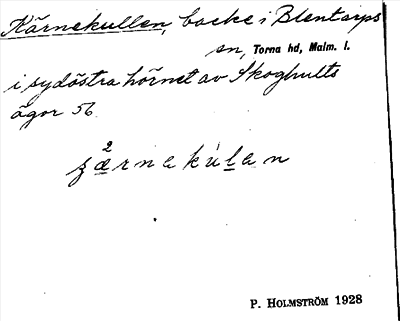 Kärnekullen, backe i Blentarps
sn, Torna hd, Malm. l.
i sydöstra hörnet av Skoghults
ägor 56
2
ʒærnakulan
P. HOLMSTRÖM 1928